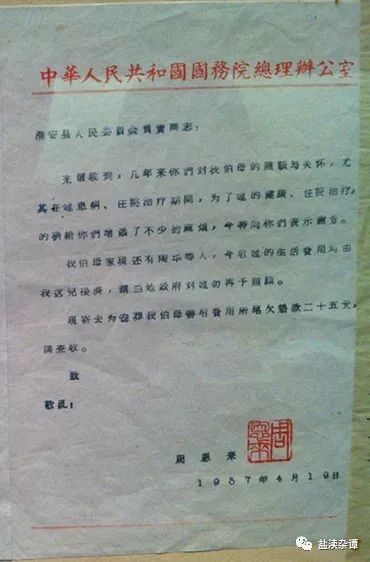 中華人民共和國國務院總理辦公室
淮安县人民委員会負責同志：
来信收到，几年来你們对我伯母的照顧与关怀，尤
其在她患病、住院治疗期間，为了她的健康、住院治疗，
的确給你們增添了不少的麻煩，今特向你們表示謝意。
我伯母家現还有陶华等人，今后她的生活費用均由
我这兒接济，請当地政府对她勿再予照顧。
現寄去为安葬我伯母善后費用所尾欠墊款二十五元，
請查收。
致
敬礼！
周恩来
1957年4月19日
盐渎杂谭